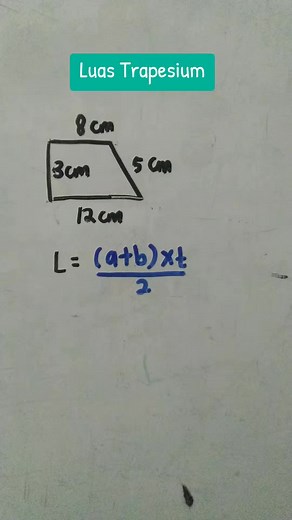 Luas Trapesium
8 cm
3cm 5 cm
12 cm
L = (a+b)xt
2